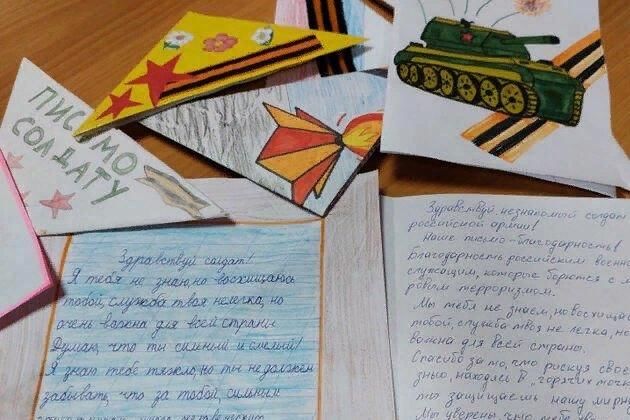 ПИСЬМО
СОЛДАТУ
Здравствуй солдат!
Я тебя не знаю, но восхищаюсь
тобой, служба твоя нелегка, но
очень важна для всей страны
Думаю, что ты сильный и смелый!
Я знаю тебе тяжело, но ты не должен
забывать, что за тобой, сильным
Здравствуй, незнакомый солдат
российской армии!
Наше письмо-благодарность!
Благодарность российским военно
служащим, которые борются с м
ровым терроризмом.
Мы тебя не знаем, но восхища
тобой, служба твоя не легка, но
важна для всей страны.
Спасибо за то, что рискуя свое
знью, находясь в "горячих точк
ты защищаешь нашу мирну
Мы уверены, что